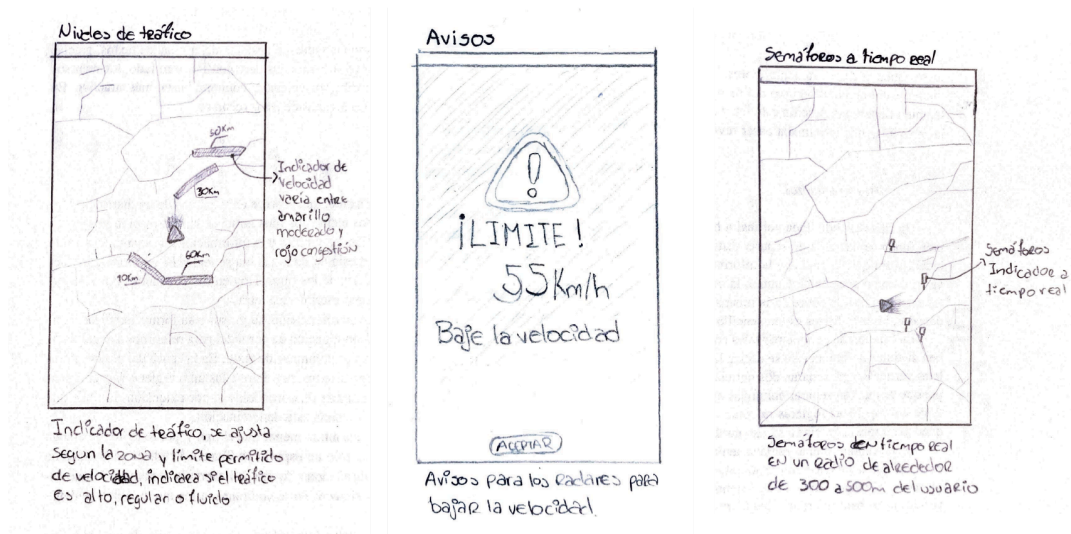 Niveles de tráfico
50Km
30Km
60Km
40Km
Indicador de
velocidad
varia entre
amarillo
moderado y
rojo congestión
Indicador de tráfico, se ajusta
segun la zona y límite permitido
de velocidad, indicara si el tráfico
es alto, regular o fluido
Avisos
¡LIMITE!
55Km/h
Baje la velocidad
ACEPTAR
Avisos para los radares para
bajar la velocidad.
Semáforos a tiempo real
Semáforos
Indicador a
tiempo real
Semáforos en tiempo real
en un radio de alrededor
de 300 a 500m del usuario